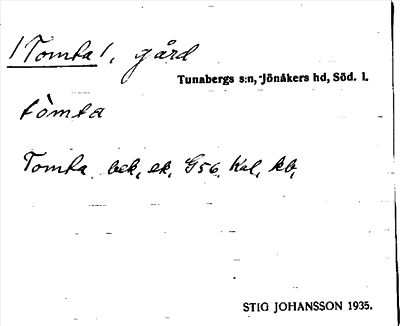 /Tomta/, gård
Tunabergs s:n, Jönåkers hd, Söd. l.
tòmta
Tomta bek, ek, G56, Kal, kb,
STIG JOHANSSON 1935.